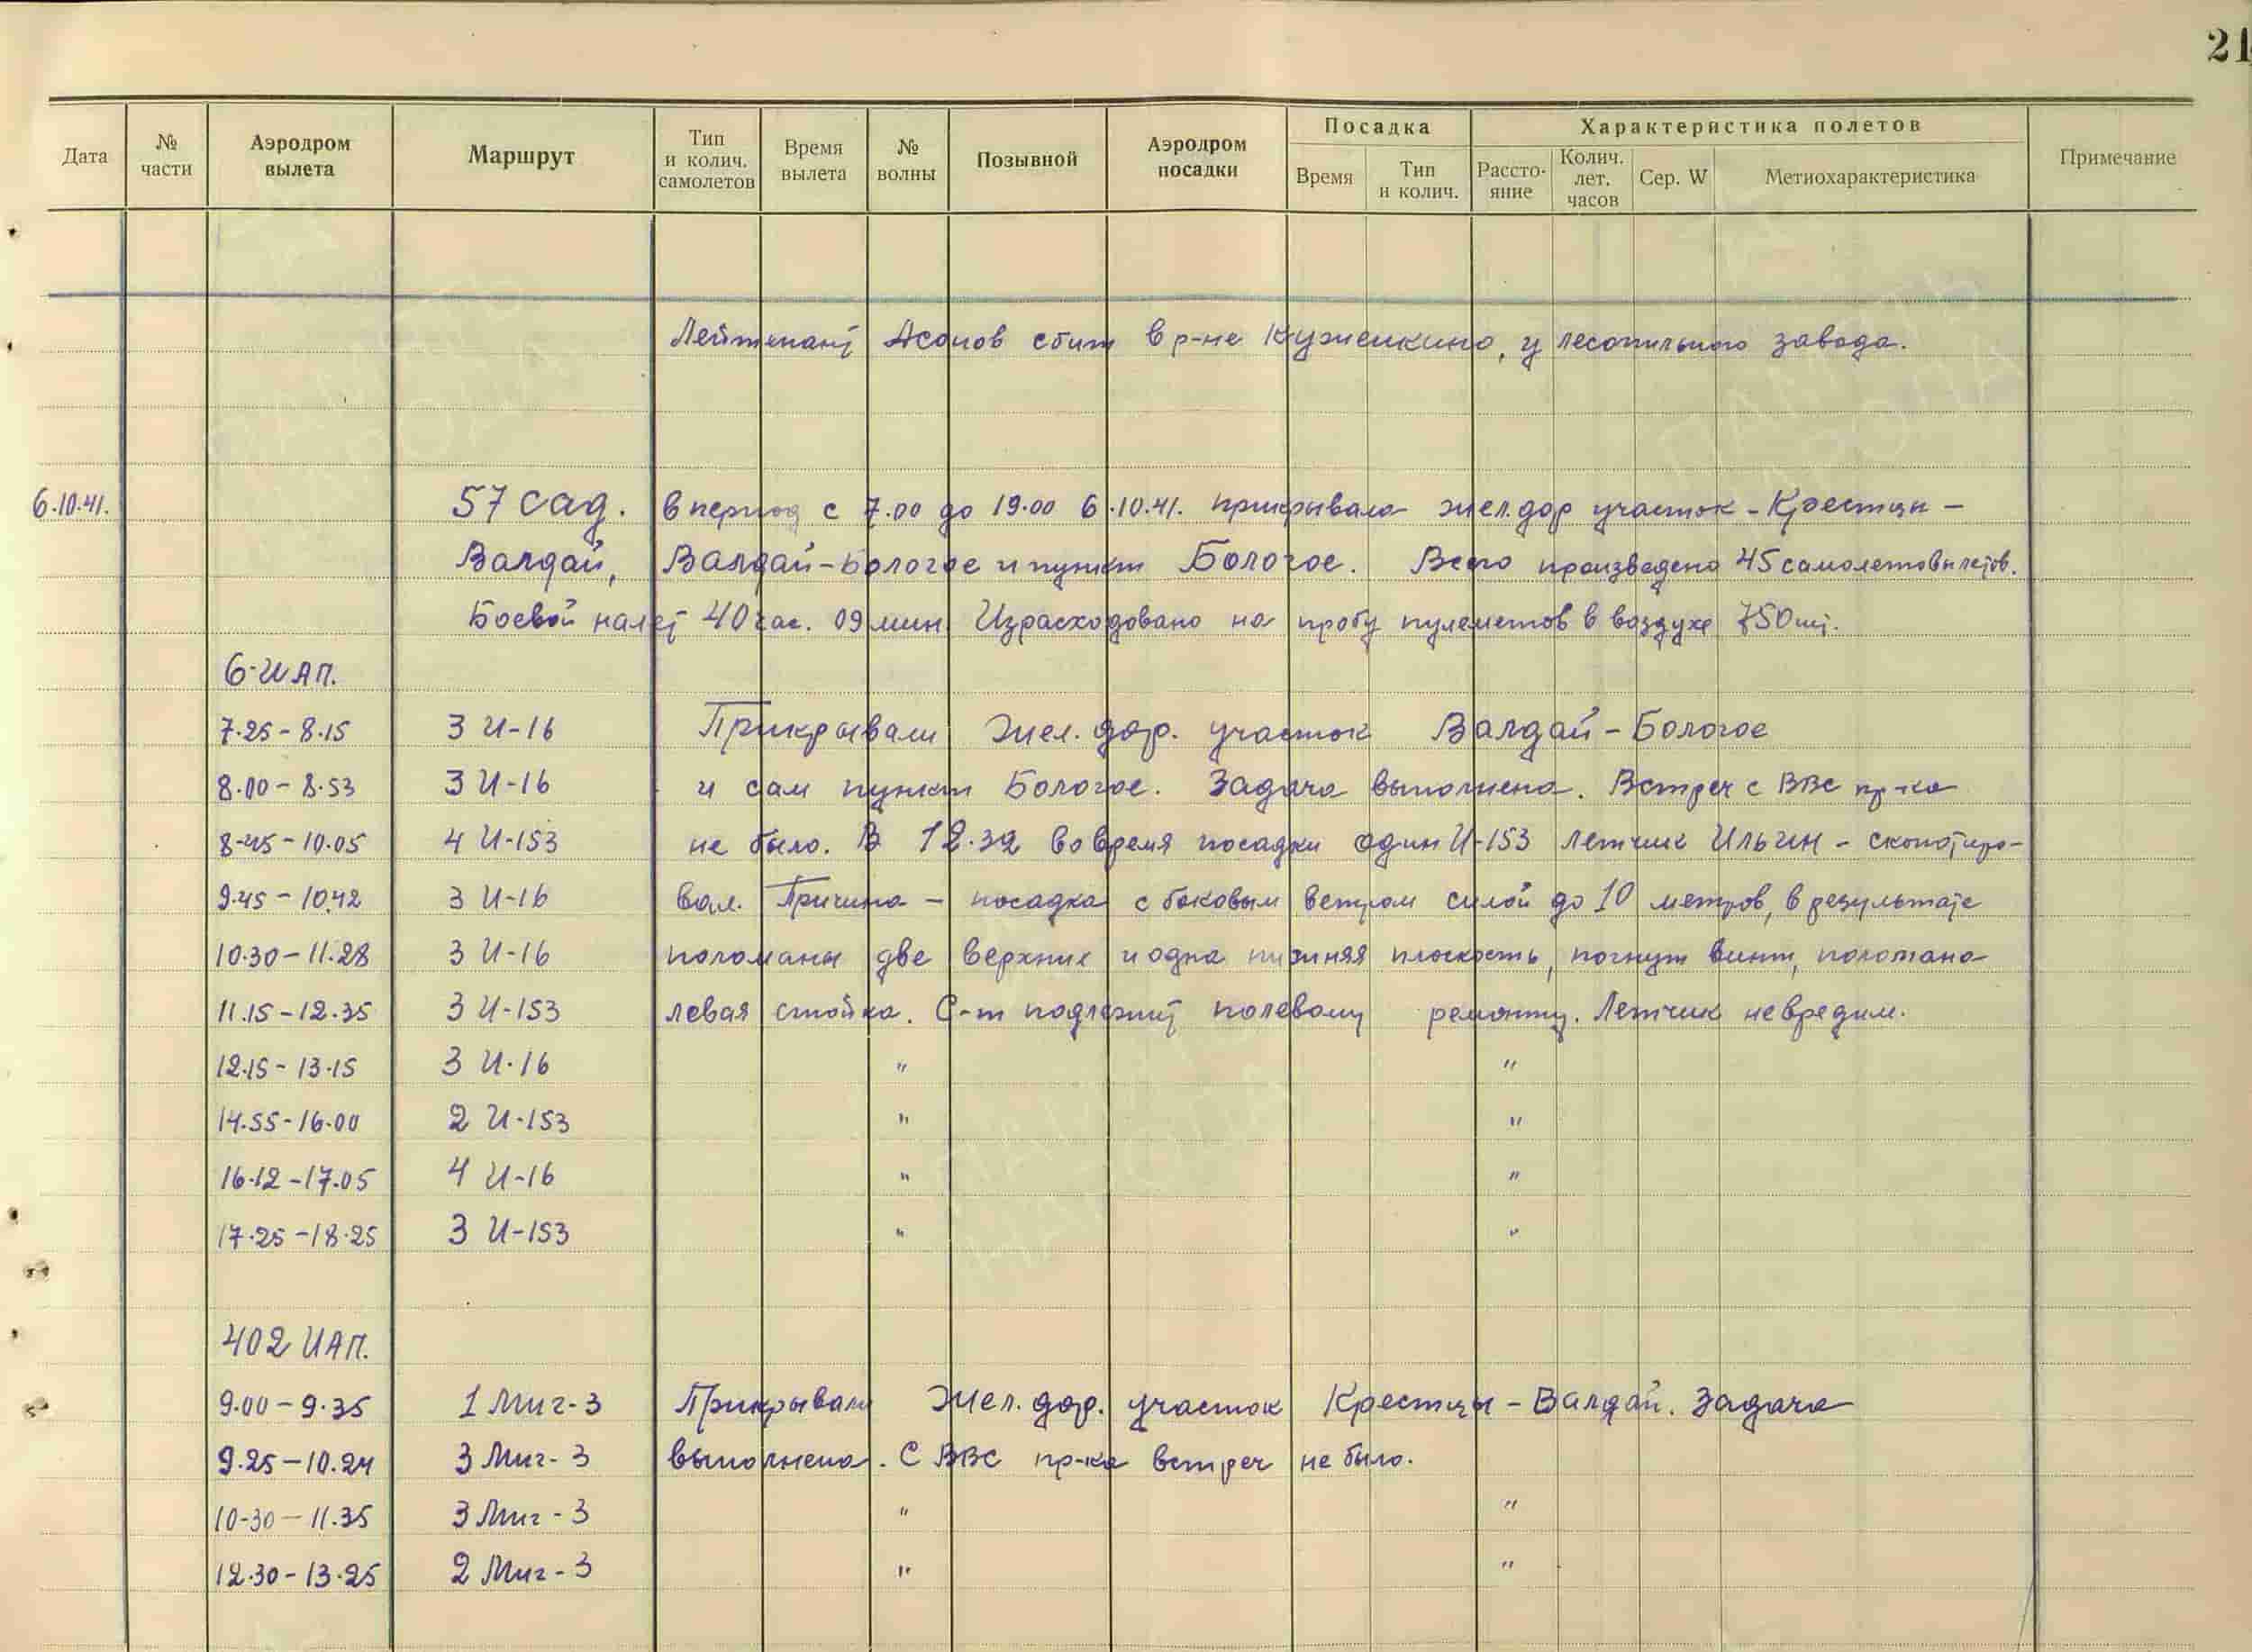 21
Дата № части Аэродром вылета Маршрут Тип и колич. самолетов Время вылета № волны Позывной Аэродром посадки Посадка Время Тип и колич. Характеристика полетов Рассто-яние Колич. лет. часов Сер. W Метиохарактеристика Примечание
Лейтенант Асонов сбит в р-не Куженкино, у лесопильного завода.
6.10.41. 57 сад. в период с 7.00 до 19.00 6.10.41. прикрывала жел.дор участок - Крестцы -
Валдай, Валдай - Бологое и пункт Бологое. Всего произведено 45 самолетовылетов.
Боевой налет 40 час. 09 мин Израсходовано на пробу пулеметов в воздухе 750 шт.
6-ИАП.
7.25 - 8.15 3 И-16 Прикрывали жел. дор. участок Валдай - Бологое
8.00 - 8.53 3 И-16 и сам пункт Бологое. Задача выполнена. Встреч с ВВС пр-ка
8-45 - 10.05 4 И-153 не было. В 12.32 во время посадки один И-153 летчик Ильин - скопотиро-
9.45 - 10.42 3 И-16 вал. Причина - посадка с боковым ветром силой до 10 метров, в результате
10.30 - 11.28 3 И-16 поломаны две верхних и одна нижняя плоскость, погнут винт, поломана
11.15 - 12.35 3 И-153 левая стойка. С-т подлежит полевому ремонту. Летчик невредим.
12.15 - 13.15 3 И-16 " "
14.55 - 16.00 2 И-153 " "
16.12 - 17.05 4 И-16 " "
17.25 - 18.25 3 И-153 " "
402 ИАП.
9.00 - 9.35 1 Миг-3 Прикрывали жел. дор. участок Крестцы - Валдай. Задача
9.25 - 10.24 3 Миг-3 выполнена. С ВВС пр-ка встреч не было.
10-30 - 11.35 3 Миг-3 " "
12.30 - 13.25 2 Миг-3 " "